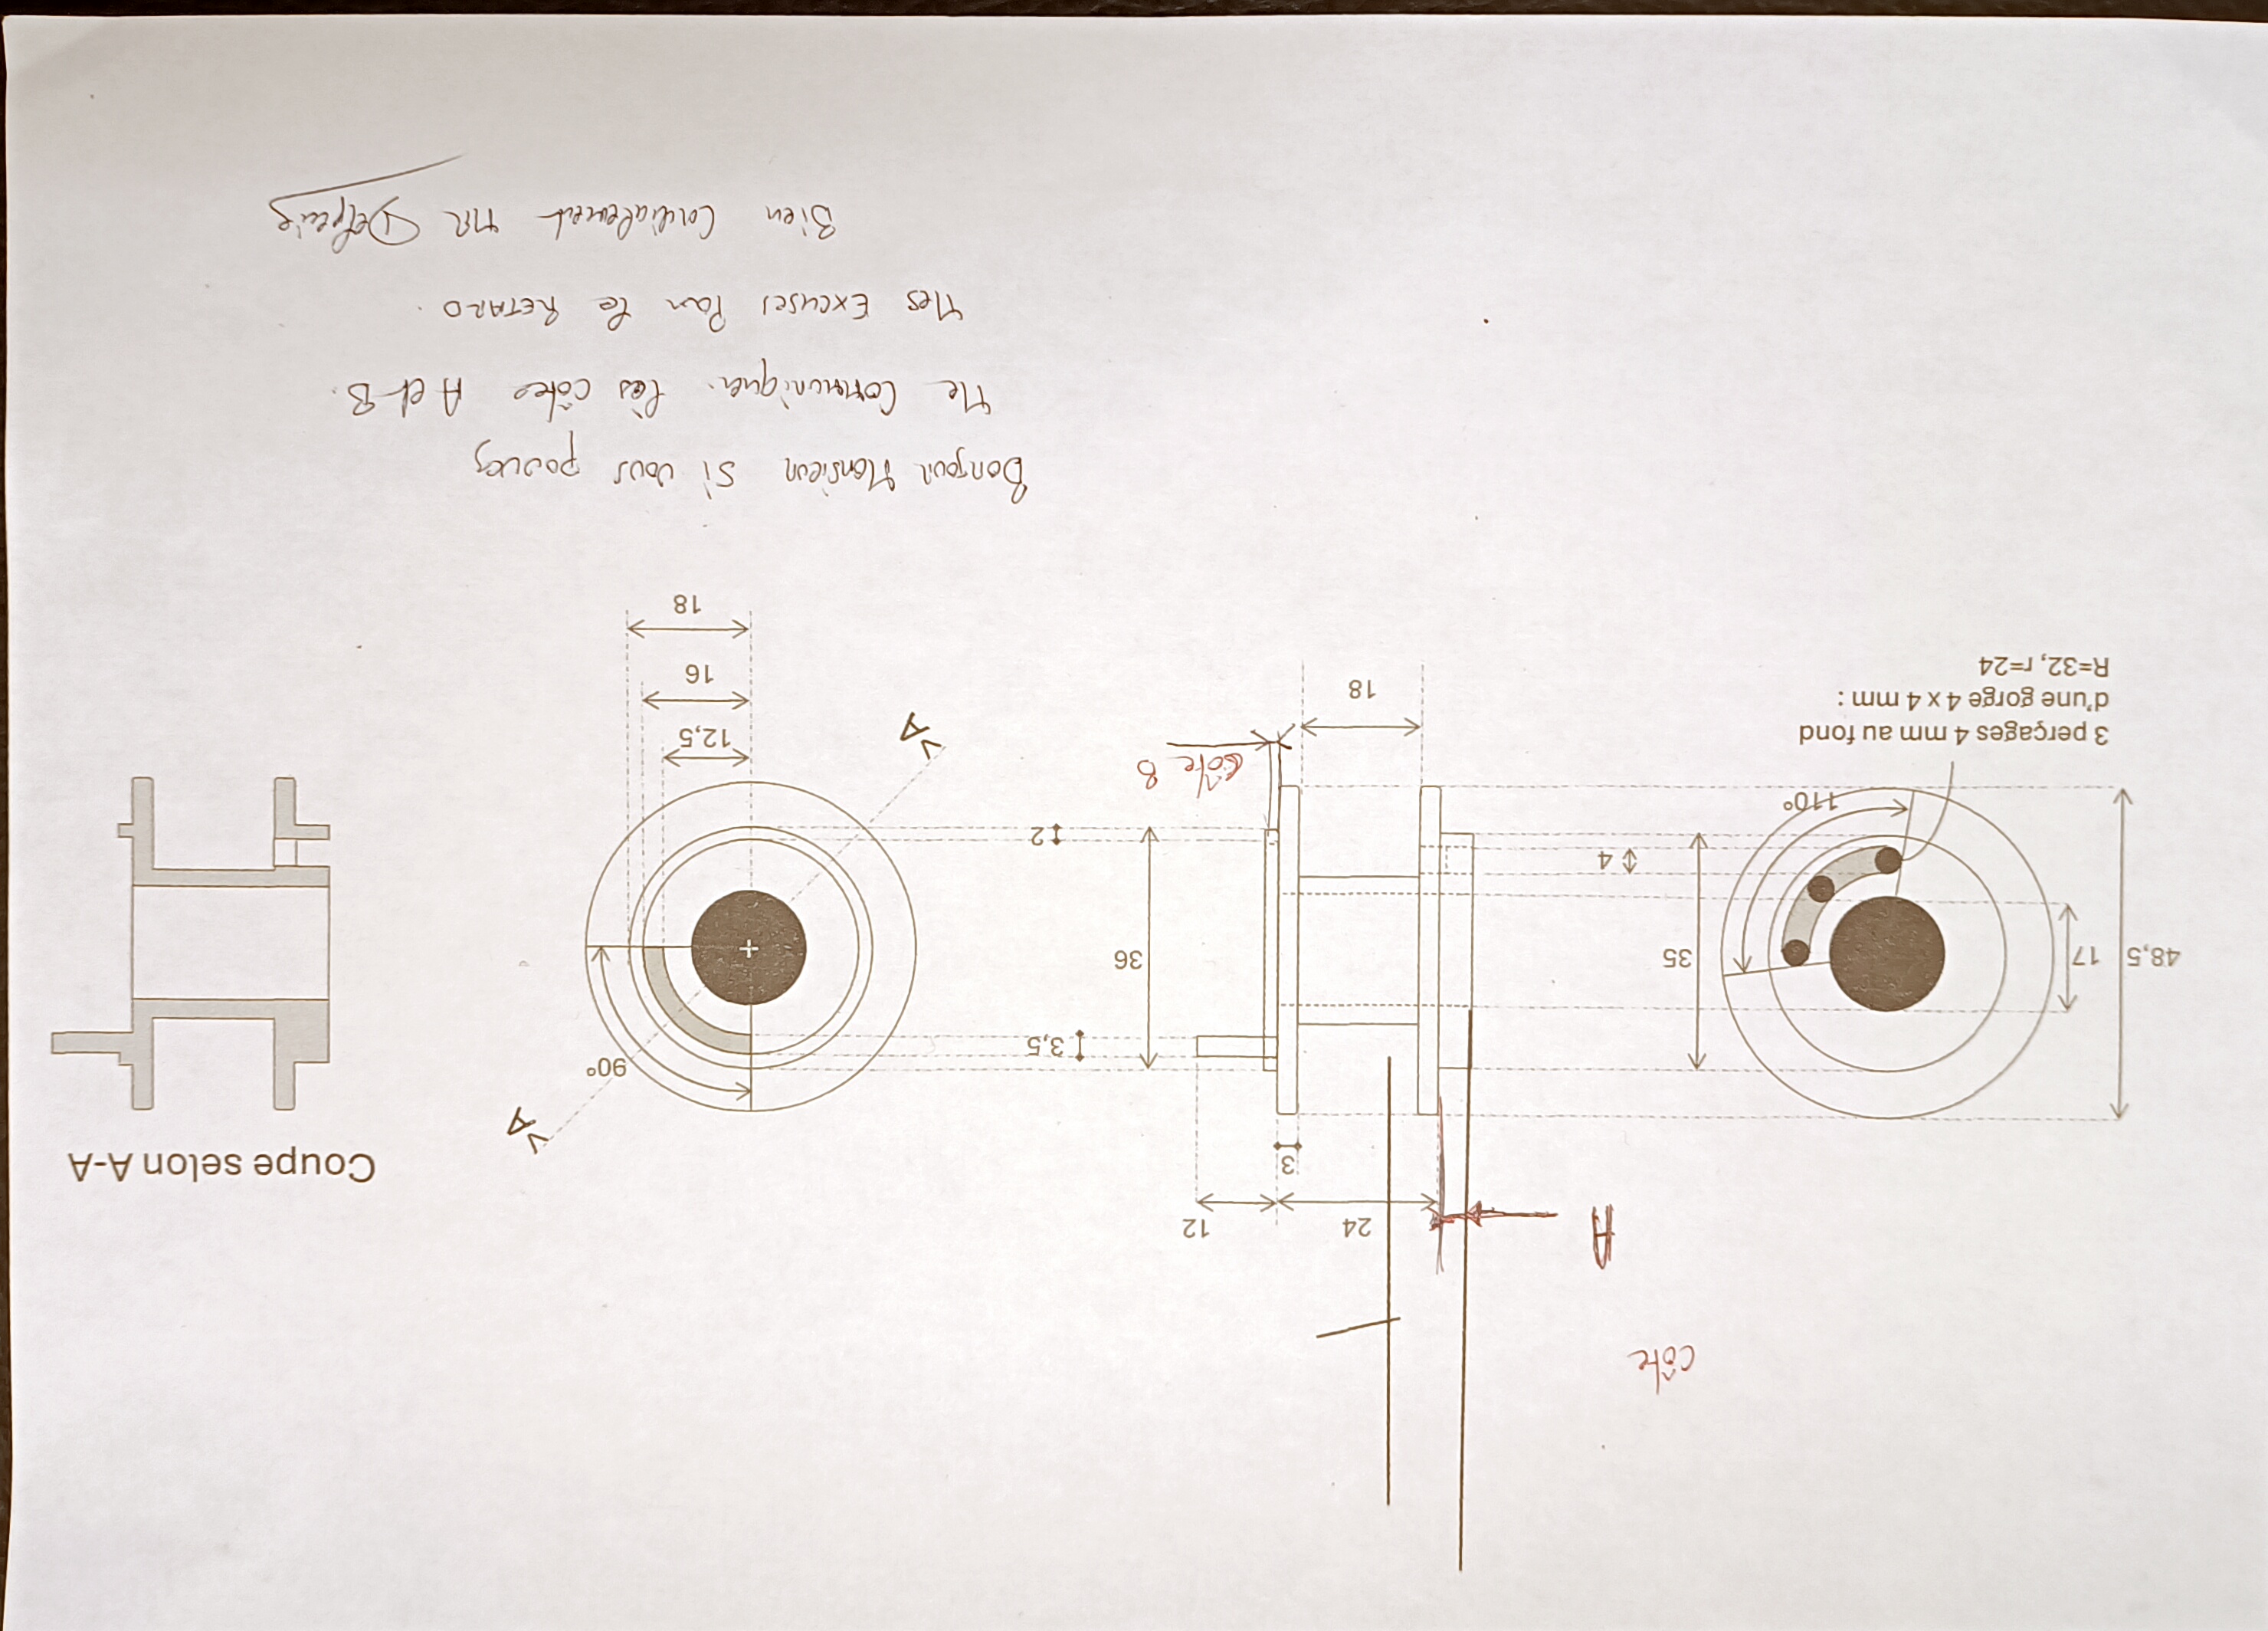 côte
A
12
24
3
Coupe selon A-A
A
A
90°
3,5
36
2
35
4
48,5
17
110°
3 perçages 4 mm au fond
d'une gorge 4 x 4 mm :
R=32, r=24
côte B
18
12,5
16
18
Bonjour Monsieur si vous pouvez
Me Communiquer les côtes A et B.
Mes Excuses Pour le RETARD.
Bien Cordialement MR